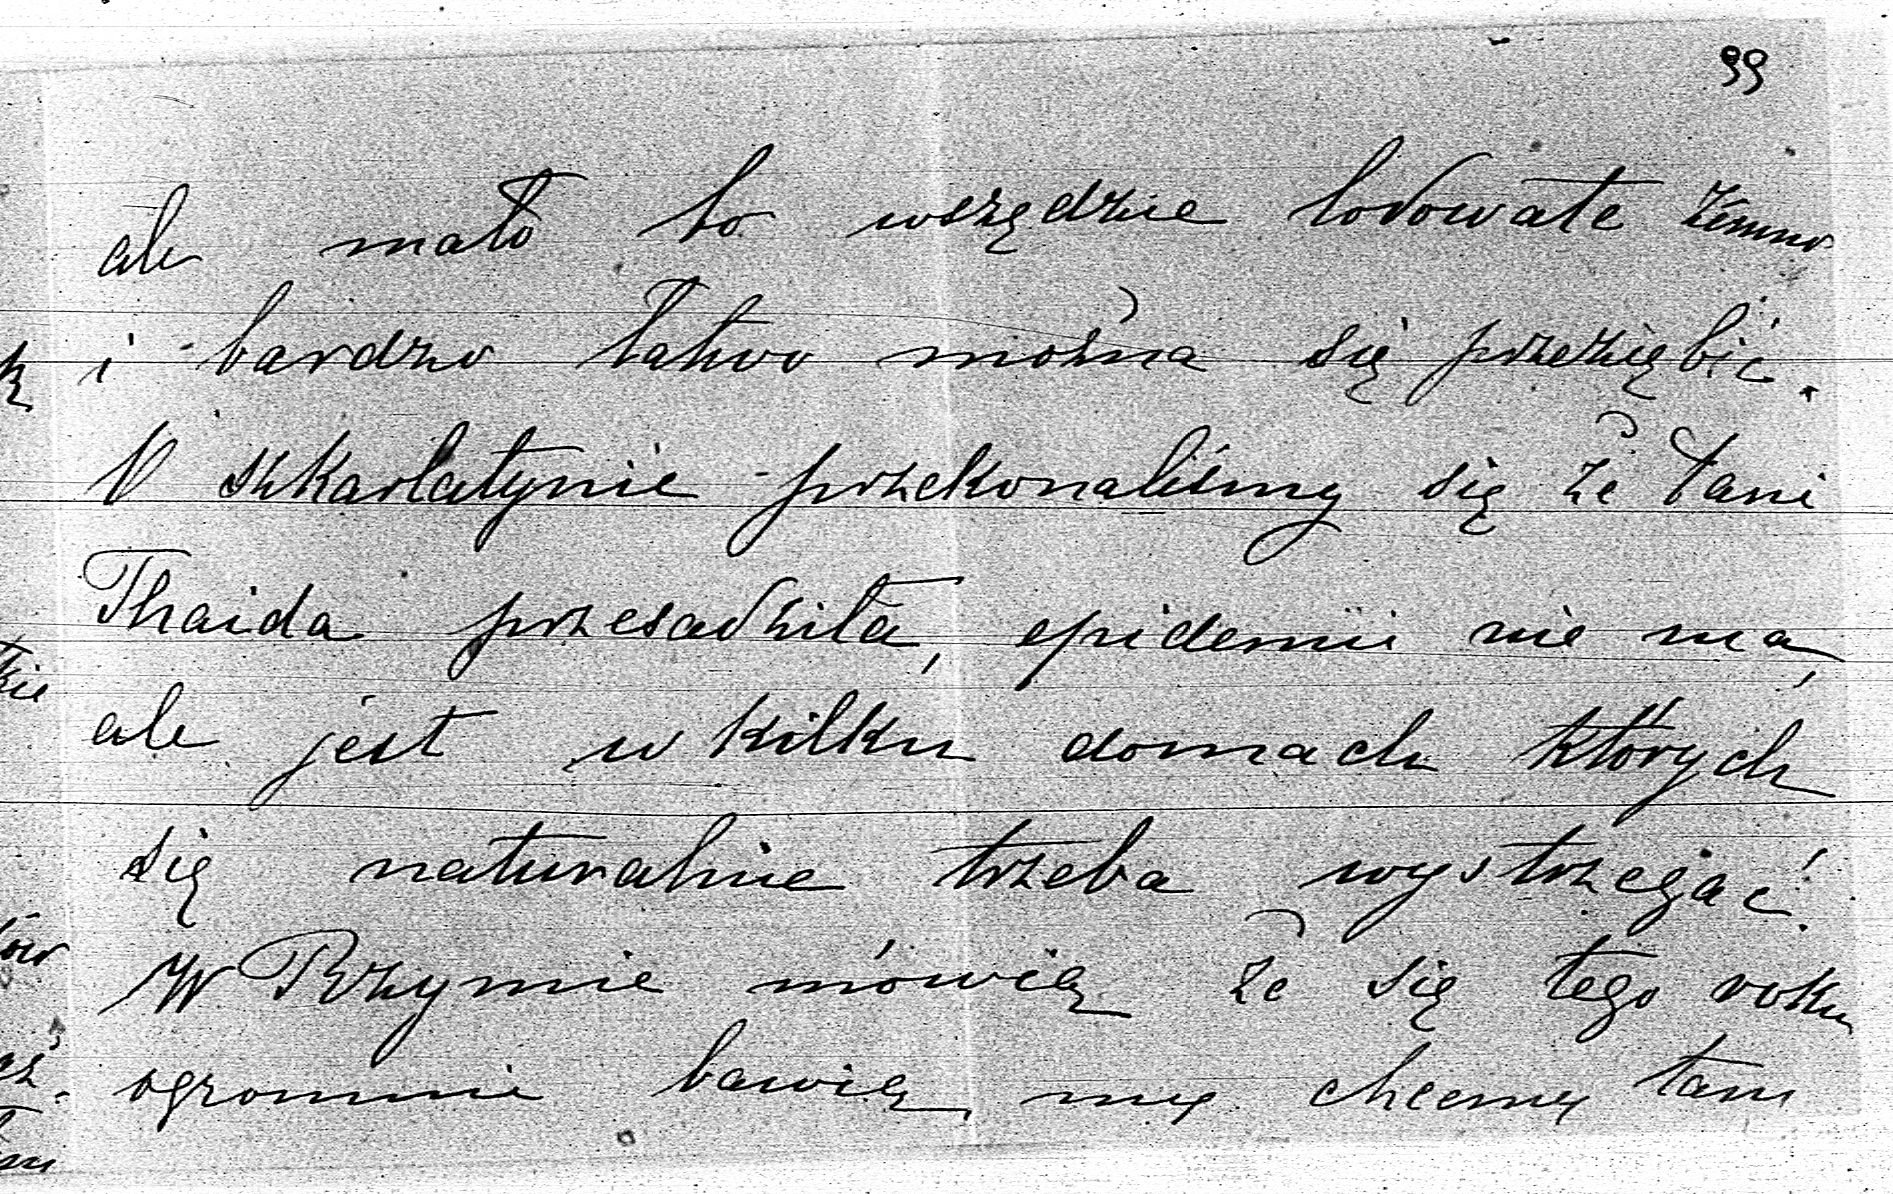 99
ale mało bo wszędzie lodowate zimno
i bardzo łatwo można się przeziębić.
O szkarlatynie przekonaliśmy się że Pani
Thaida przesadziła, epidemii nie ma,
ale jest w kilku domach których
się naturalnie trzeba wystrzegać.
W Rzymie mówią że się tego roku
ogromnie bawią, my chcemy tam